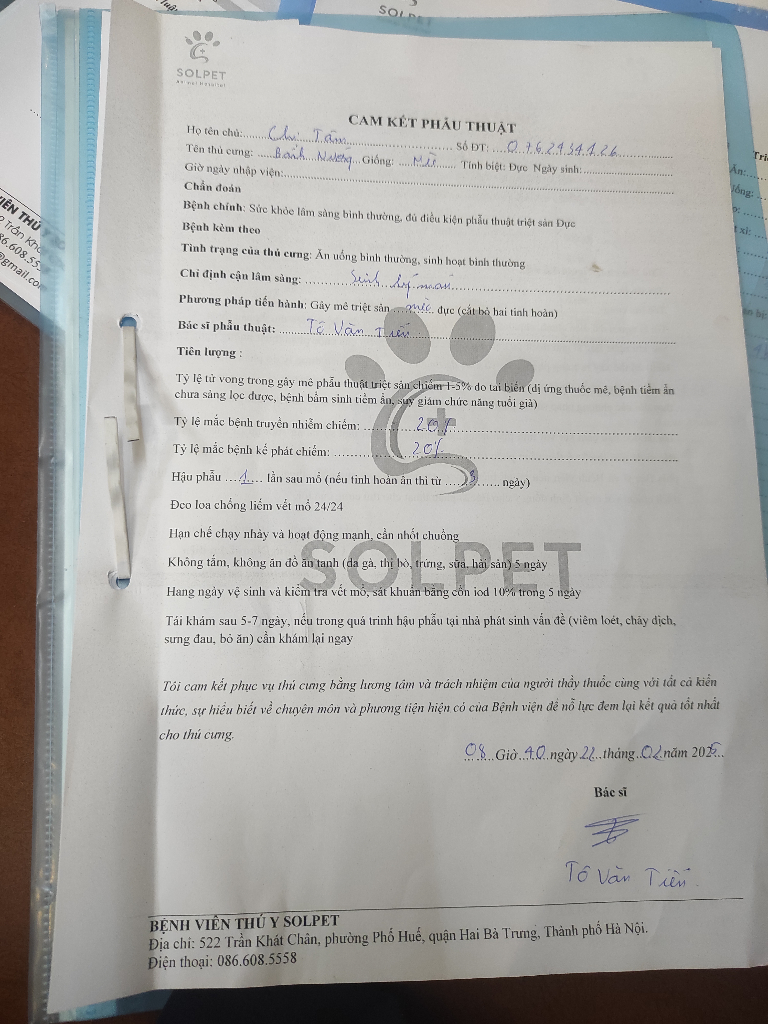 SOLPET
SOLPET
Animal Hospital
CAM KẾT PHẪU THUẬT
Họ tên chủ:........Chị Tâm........Số ĐT: ....0762434126........
Tên thú cưng: ....Bánh Nướng...Giống: ....Mèo.... Tính biệt: Đực Ngày sinh:........
Giờ ngày nhập viện:........
Chẩn đoán
Bệnh chính: Sức khỏe lâm sàng bình thường, đủ điều kiện phẫu thuật triệt sản Đực
Bệnh kèm theo
Tình trạng của thú cưng: Ăn uống bình thường, sinh hoạt bình thường
Chỉ định cận lâm sàng: ........Sinh lý máu........
Phương pháp tiến hành: Gây mê triệt sản ...mèo... đực (cắt bỏ hai tinh hoàn)
Bác sĩ phẫu thuật: ........Tô Văn Tiến........
Tiên lượng :
Tỷ lệ tử vong trong gây mê phẫu thuật triệt sản chiếm 1-5% do tai biến (dị ứng thuốc mê, bệnh tiềm ẩn
chưa sàng lọc được, bệnh bẩm sinh tiềm ẩn, suy giảm chức năng tuổi già)
Tỷ lệ mắc bệnh truyền nhiễm chiếm: ........20%........
Tỷ lệ mắc bệnh kế phát chiếm: ........20%........
Hậu phẫu ....1.... lần sau mổ (nếu tinh hoàn ẩn thì từ ....3...... ngày)
Đeo loa chống liếm vết mổ 24/24
Hạn chế chạy nhảy và hoạt động mạnh, cần nhốt chuồng
Không tắm, không ăn đồ ăn tanh (da gà, thị bò, trứng, sữa, hải sản) 5 ngày
Hang ngày vệ sinh và kiểm tra vết mổ, sát khuẩn bằng cồn iod 10% trong 5 ngày
Tái khám sau 5-7 ngày, nếu trong quá trình hậu phẫu tại nhà phát sinh vấn đề (viêm loét, chảy dịch,
sưng đau, bỏ ăn) cần khám lại ngay
SOLPET
Tôi cam kết phục vụ thú cưng bằng lương tâm và trách nhiệm của người thầy thuốc cùng với tất cả kiến
thức, sự hiểu biết về chuyên môn và phương tiện hiện có của Bệnh viện để nỗ lực đem lại kết quả tốt nhất
cho thú cưng.
08 Giờ 40 ngày 22 tháng 02 năm 2025
Bác sĩ
Tô Văn Tiến
BỆNH VIÊN THÚ Y SOLPET
Địa chỉ: 522 Trần Khát Chân, phường Phố Huế, quận Hai Bà Trưng, Thành phố Hà Nội.
Điện thoại: 086.608.5558